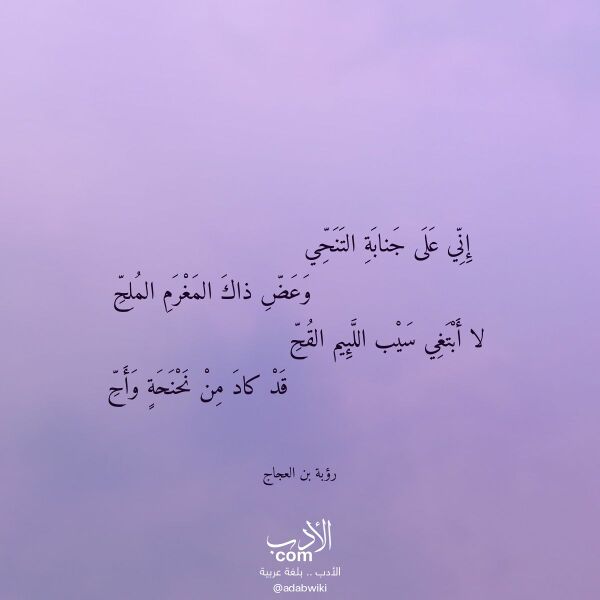 إِنِّي عَلَى جَنابَةِ التَنَحِّي
وَعَضِّ ذاكَ المَغْرَمِ المُلحِّ
لا أَبْتَغِي سَيْب اللَّئِيم القُحِّ
قَدْ كادَ مِنْ نَحْنَحَةٍ وَأَحِّ
رؤبة بن العجاج
الأدب
com
الأدب .. بلغة عربية
@adabwiki